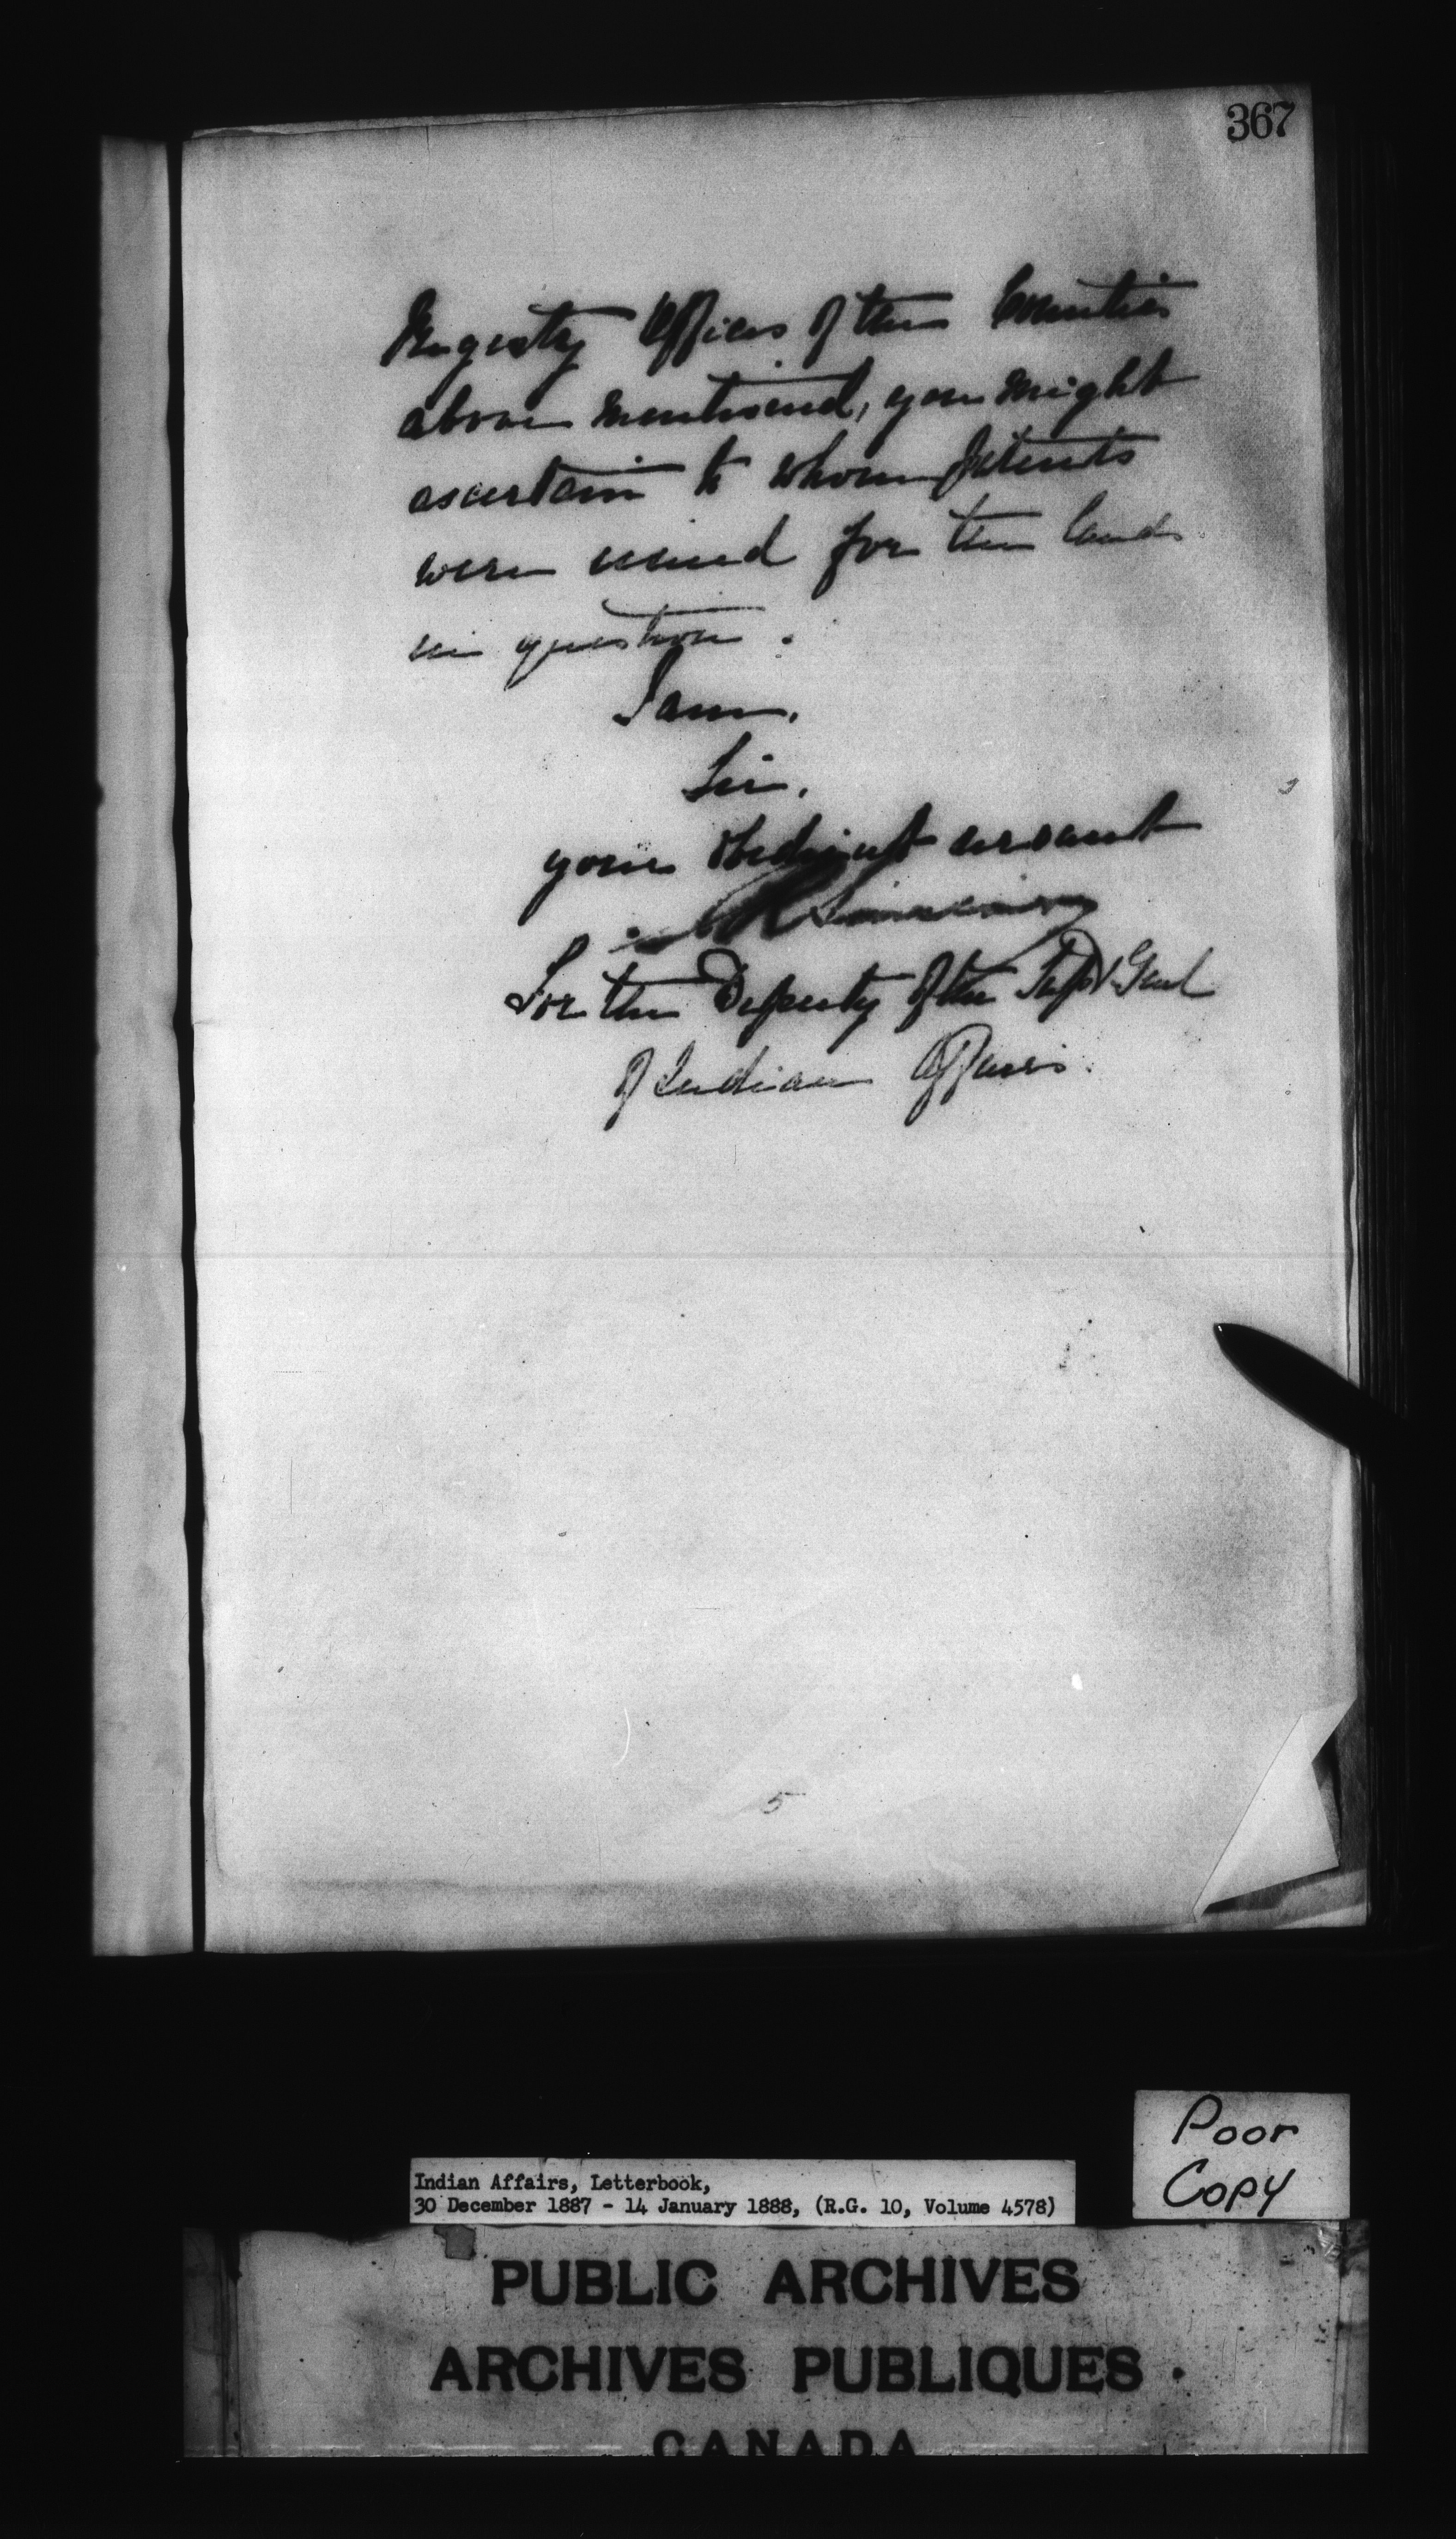 367
Registry Offices of the Counties
above mentioned, you might
ascertain to whom patents
were issued for the lands
in question.
I am,
Sir,
your obedient servant
For the Deputy of the Supt Genl
of Indian Affairs.
5
Poor
Copy
Indian Affairs, Letterbook,
30 December 1887 - 14 January 1888, (R.G. 10, Volume 4578)
PUBLIC ARCHIVES
ARCHIVES PUBLIQUES
CANADA